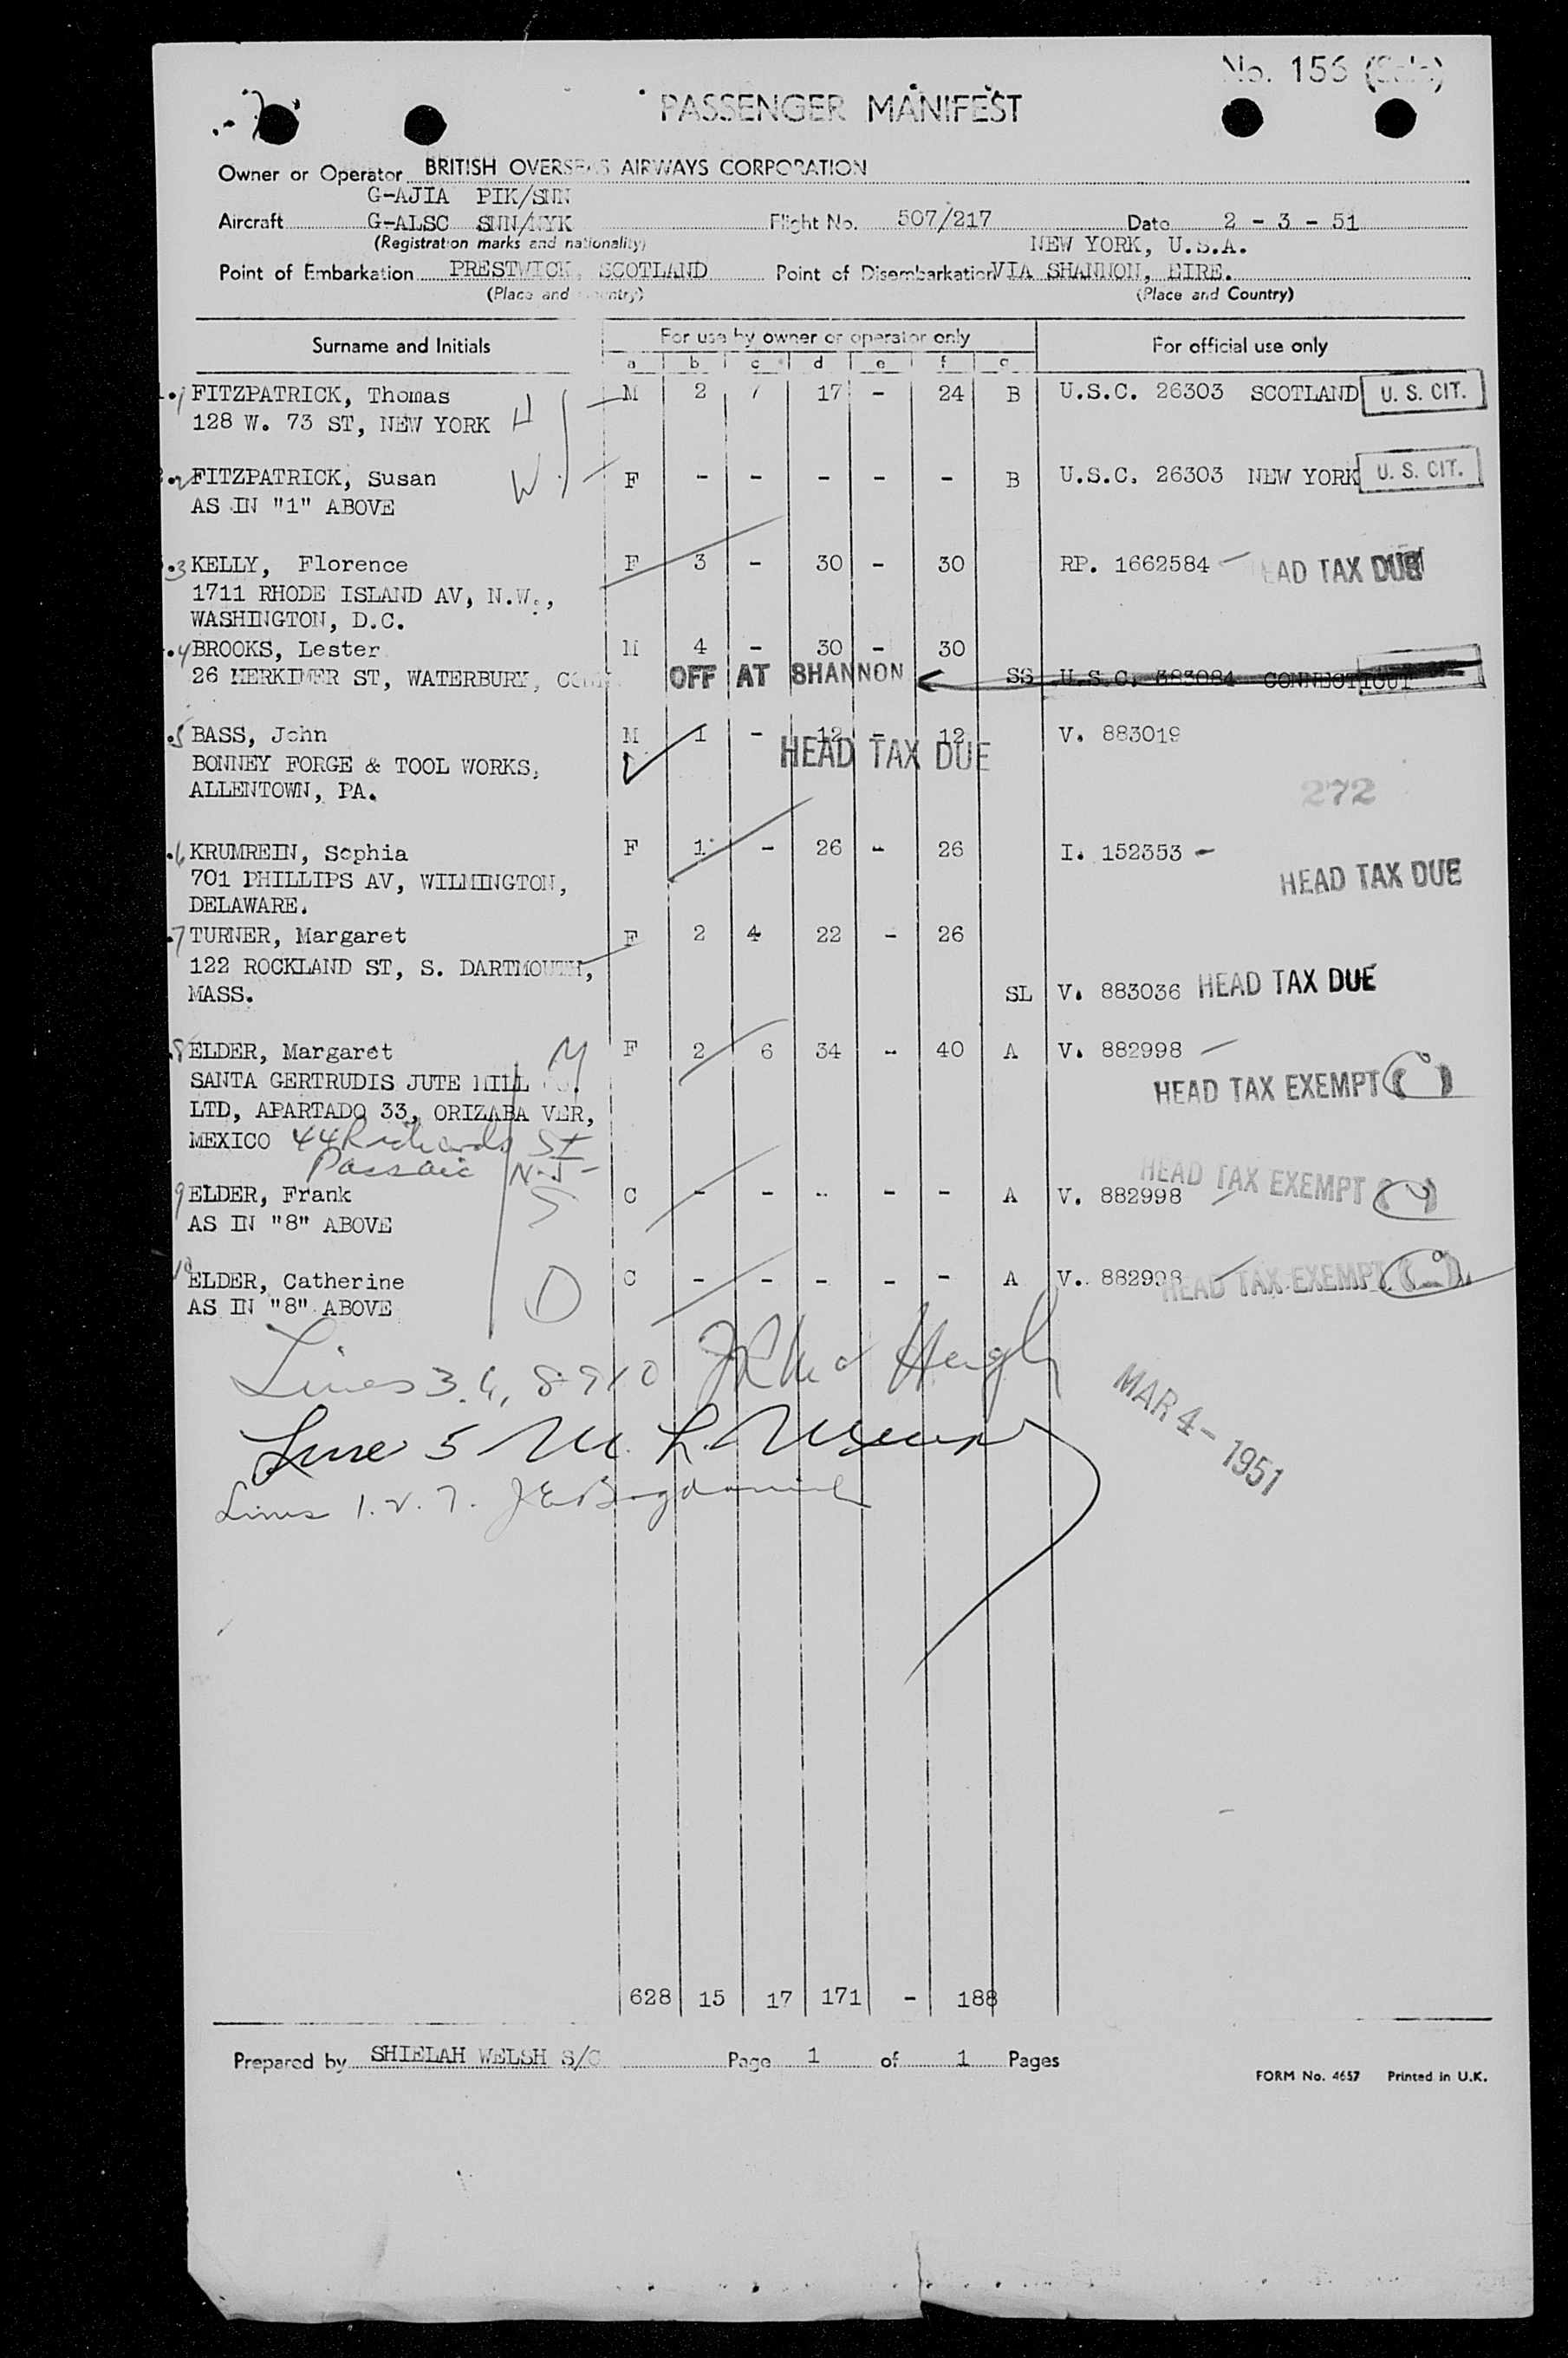 No. 156
PASSENGER MANIFEST
Owner or Operator BRITISH OVERSEAS AIRWAYS CORPORATION
G-AJIA PIK/SNN
Aircraft G-ALSC SNN/NYK Flight No. 507/217 Date 2 - 3 - 51
(Registration marks and nationality) NEW YORK, U.S.A.
Point of Embarkation PRESTWICK, SCOTLAND Point of Disembarkation VIA SHANNON, EIRE.
(Place and Country) (Place and Country)
Surname and Initials For use by owner or operator only For official use only
a b c d e f g
1 FITZPATRICK, Thomas M 2 7 17 - 24 B U.S.C. 26303 SCOTLAND U. S. CIT.
128 W. 73 ST, NEW YORK H
2 FITZPATRICK, Susan W F - - - - - B U.S.C. 26303 NEW YORK U. S. CIT.
AS IN "1" ABOVE
3 KELLY, Florence F 3 - 30 - 30 RP. 1662584 HEAD TAX DUE
1711 RHODE ISLAND AV, N.W.,
WASHINGTON, D.C.
4 BROOKS, Lester M 4 - 30 - 30
26 HERKIMER ST, WATERBURY, CONN. OFF AT SHANNON SS U.S.C. 383084 CONNECTICUT
5 BASS, John M 1 - 12 - 12 V. 883019
BONNEY FORGE & TOOL WORKS, HEAD TAX DUE
ALLENTOWN, PA. 272
6 KRUMREIN, Sophia F 1 - 26 - 26 I. 152353
701 PHILLIPS AV, WILMINGTON, HEAD TAX DUE
DELAWARE.
7 TURNER, Margaret F 2 4 22 - 26
122 ROCKLAND ST, S. DARTMOUTH,
MASS. SL V. 883036 HEAD TAX DUE
8 ELDER, Margaret M F 2 6 34 - 40 A V. 882998
SANTA GERTRUDIS JUTE MILL CO. HEAD TAX EXEMPT
LTD, APARTADO 33, ORIZABA VER,
MEXICO 44 Richards St
Passaic N.J-
HEAD TAX EXEMPT
9 ELDER, Frank S C - - - - - A V. 882998
AS IN "8" ABOVE
10 ELDER, Catherine D C - - - - - A V. 882998 HEAD TAX EXEMPT
AS IN "8" ABOVE
Lines 3, 6, 8 9 10
MAR 4 - 1951
Line 5 M. L.
Lines 1. 2. 7. J E
628 15 17 171 - 188
Prepared by SHIELAH WELSH S/O Page 1 of 1 Pages
FORM No. 4657 Printed in U.K.